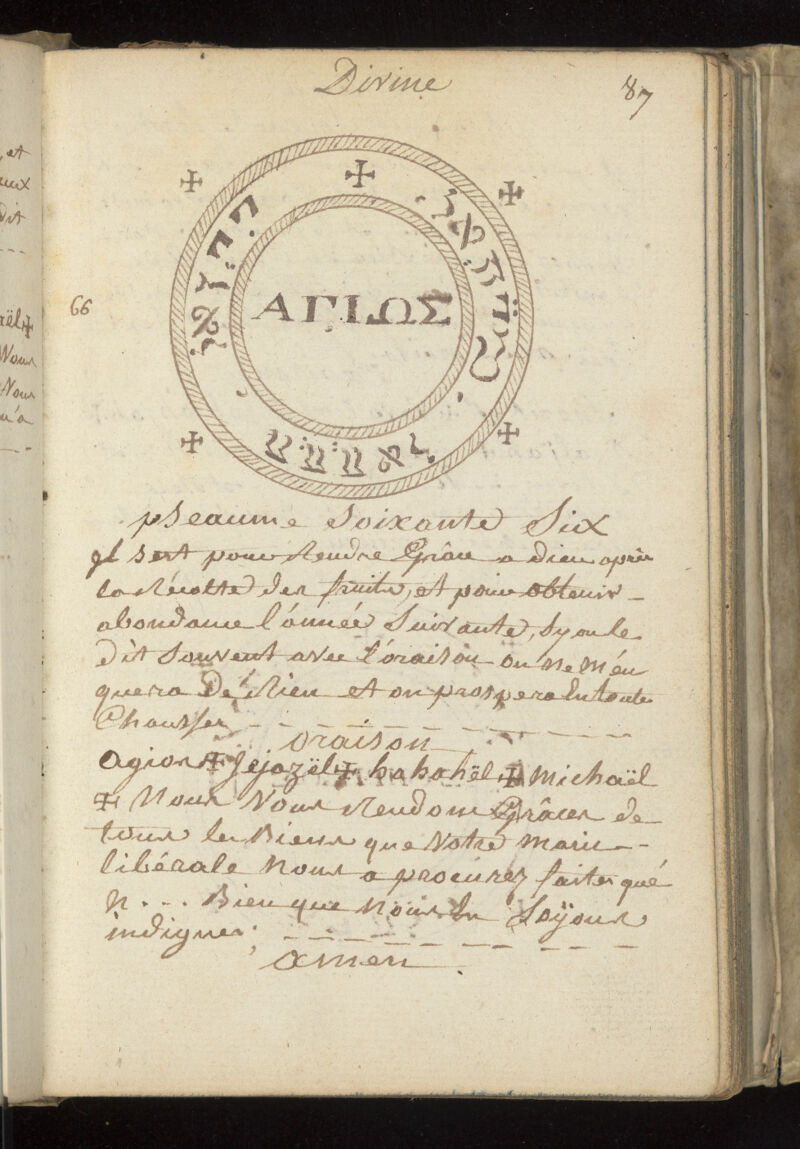 Divine
87
66
ΑΓΙΩΣ
pseaume Soixante Six
jl sert pour Rendre Grâce a dieu après
la Récolte des fruits, et pour obtenir -
abondance l'année Suivante, Sy on le
dit Souvent avec l'oraison on ne Men
quera De Rien et on prospera En toute
Chousses - - - - - - - - - -
oraison
agios ✠ Jejazël ✠ hahahël ✠ Michaël
✠ Nous Vous Rendons Grâces de
tous les Biens que Votre main -
libérale Nous a procurez faites que
N... Bien que Nous En Soÿons
indignes; - - - - - - - - -
amen.
et
aux
dit
aël ✠
Vous
Nous